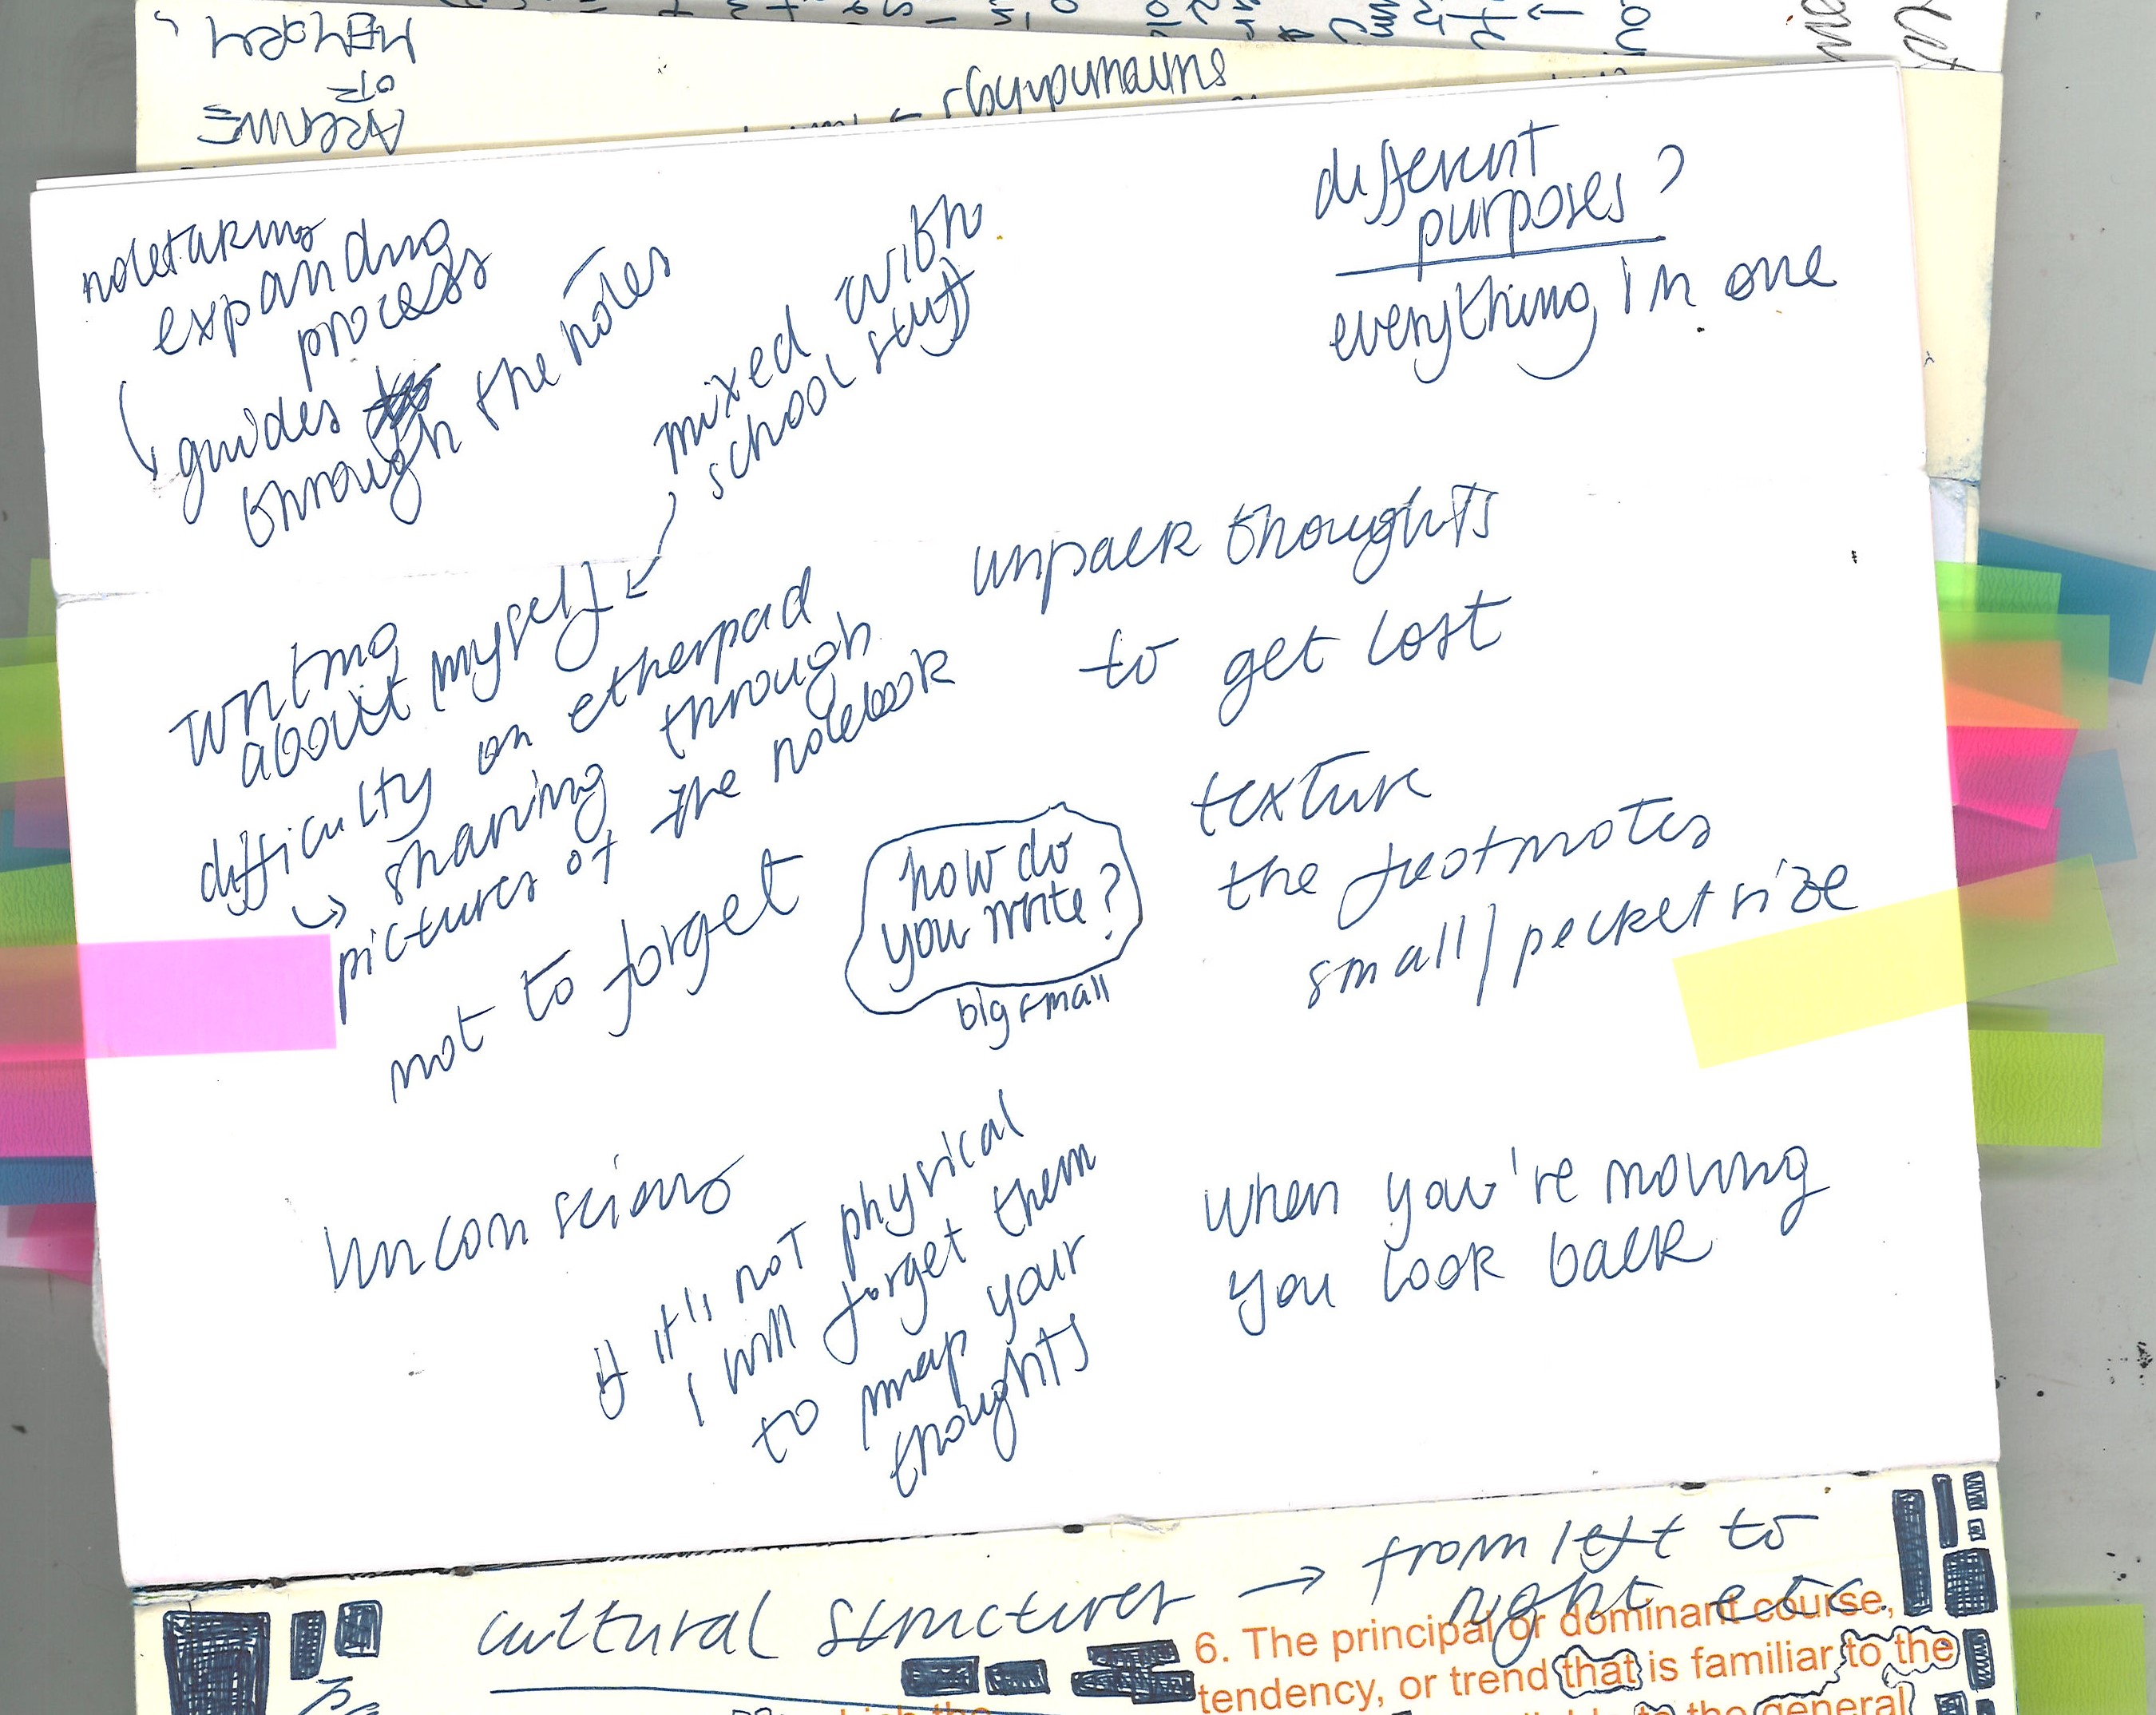 MEMORY
OR
ARCHIVE
notetaking
expanding
process
guides
through the notes
mixed with
school stuff
different
purposes?
everything in one
writing
about myself
difficulty on etherpad
↳ sharing through
pictures of the notebook
not to forget
unpack thoughts
to get lost
how do
you write?
big small
texture
the footnotes
small/pocket size
unconscious
if it's not physical
I will forget them
to map your
thoughts
when you're moving
you look back
cultural structures → from left to
right etc.
6. The principal or dominant course,
tendency, or trend that is familiar to the
to the general